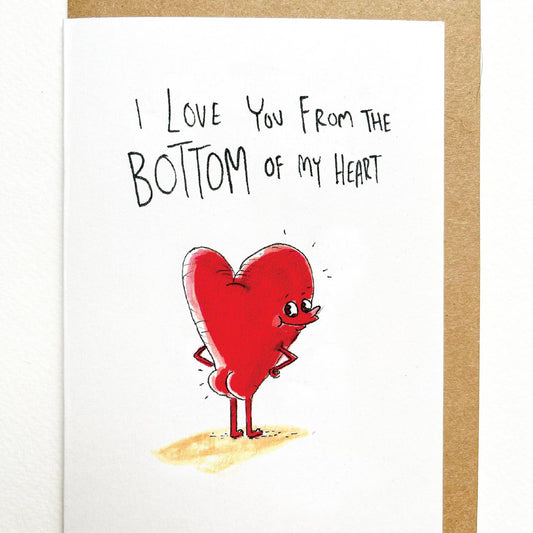 I LOVE YOU FROM THE
BOTTOM OF MY HEART